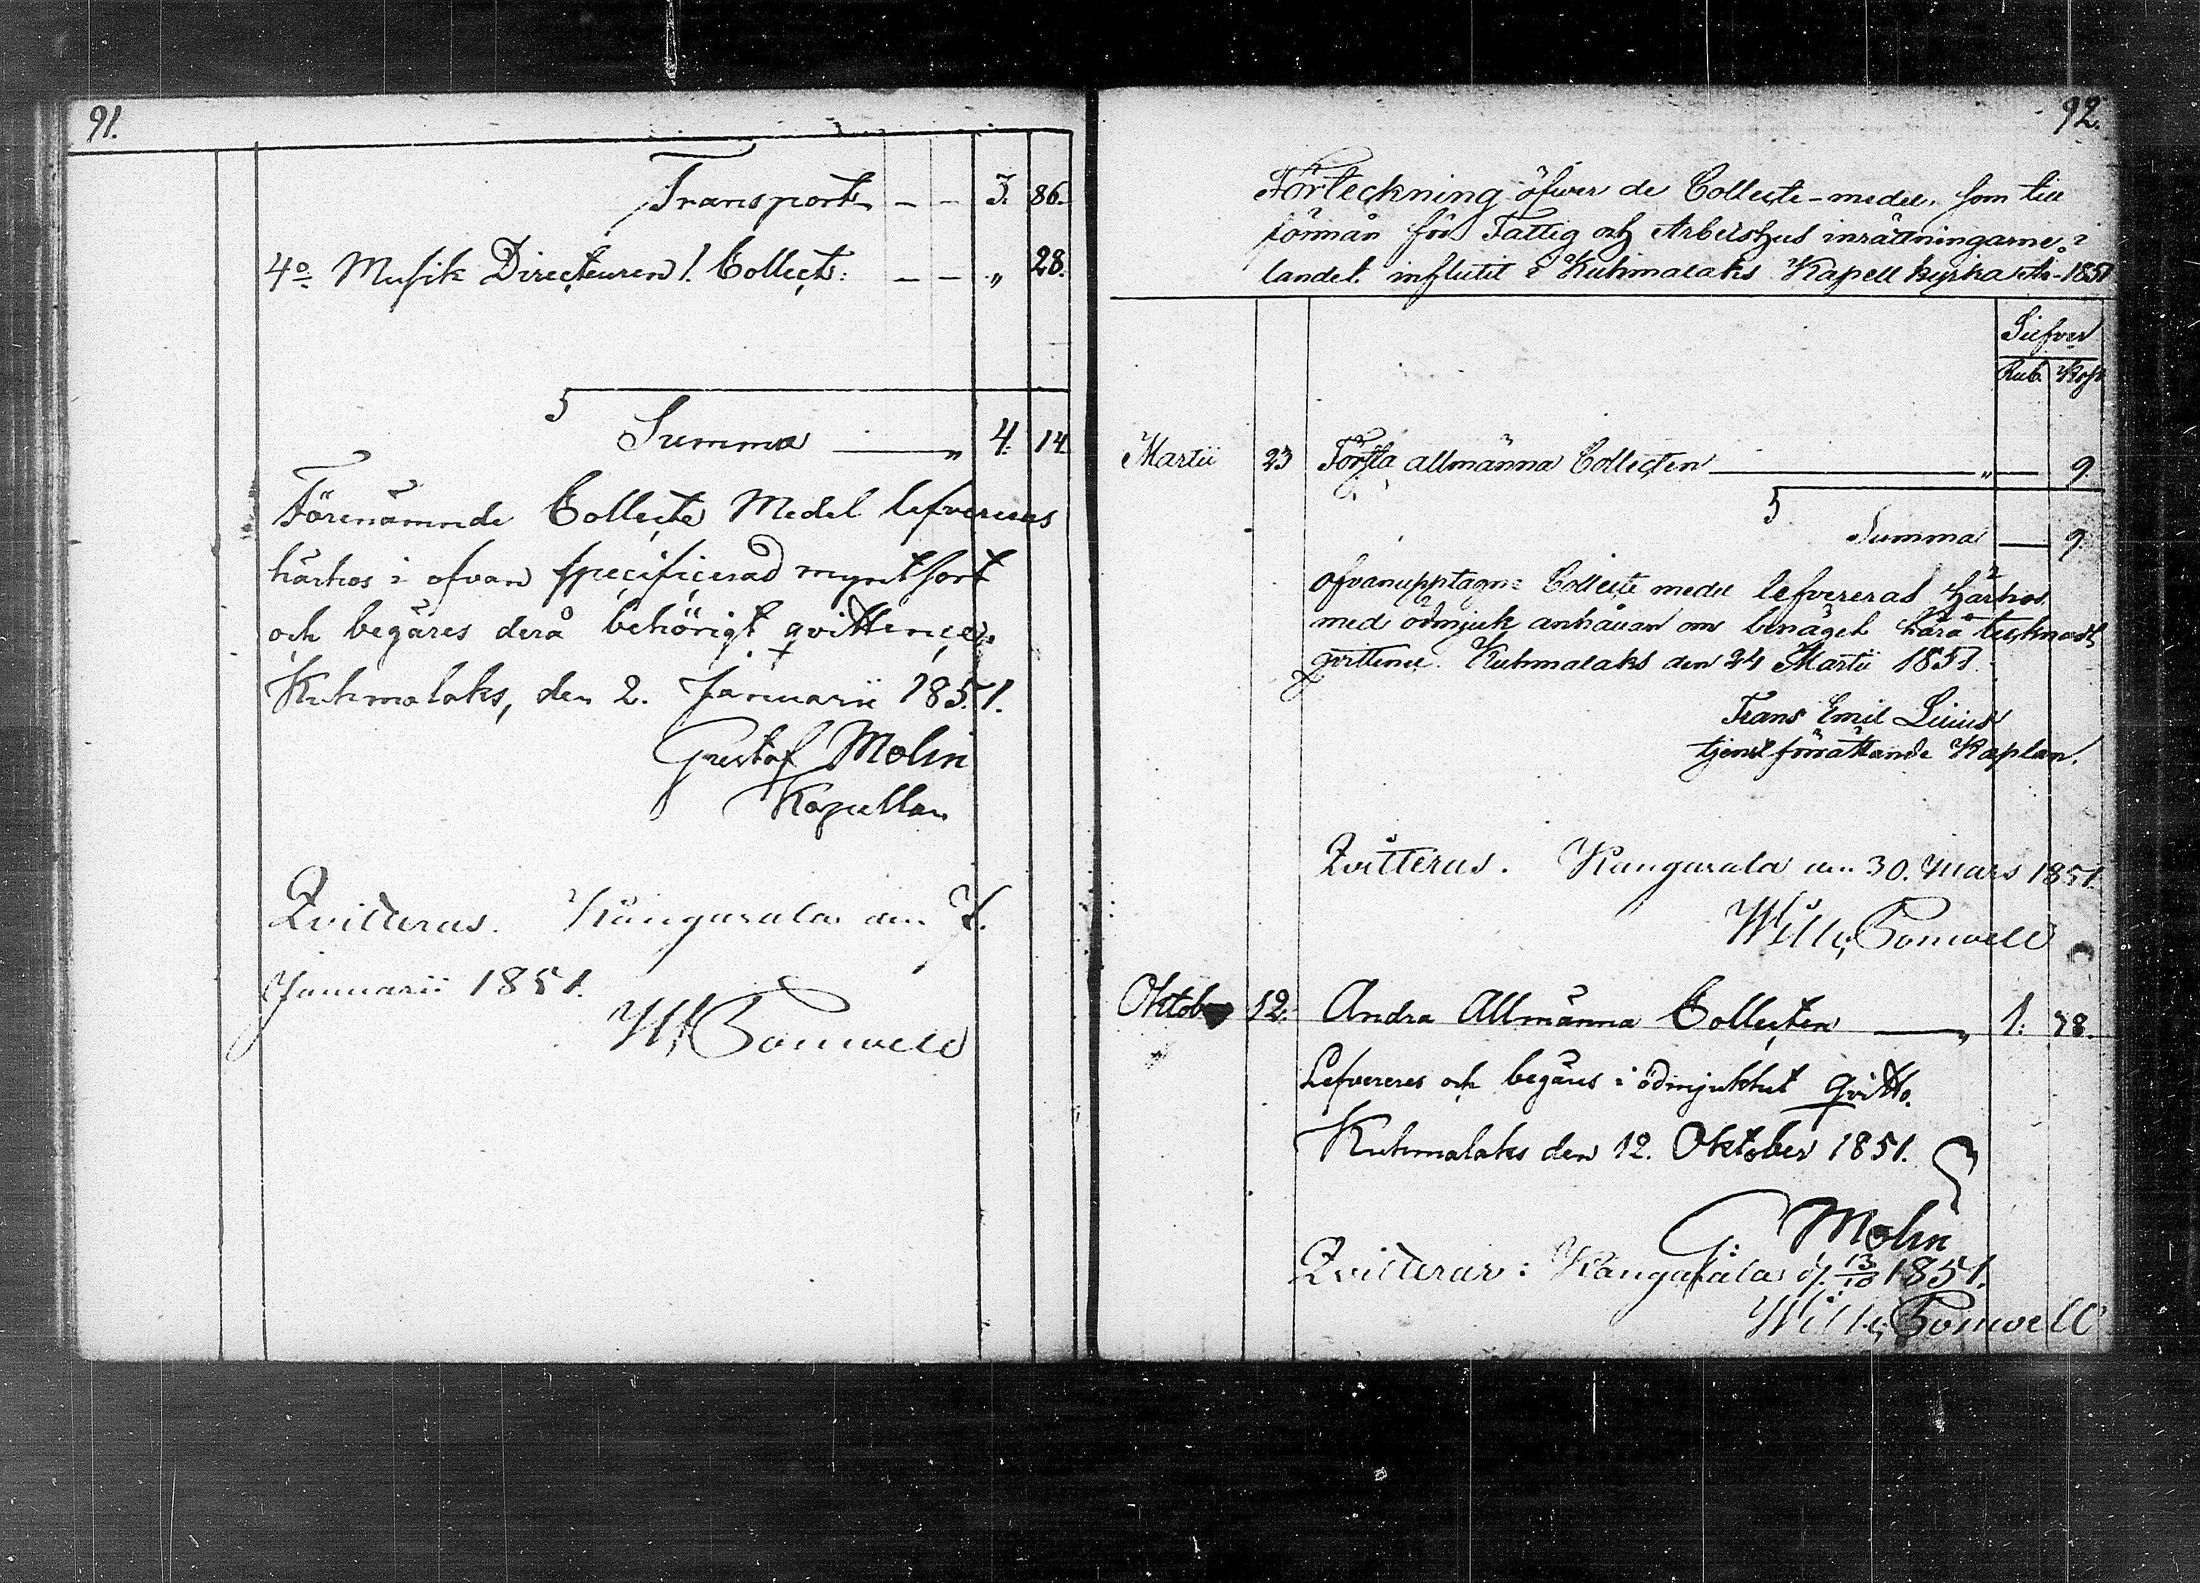 91.
Transport — — 3. 86.
4o Musik Directeurens Collect: — — „ 28.
Summa — „ 4. 14
Förenämnde Collecte Medel lefvereras
härhos i ofvan specificerad myntsort
och begäres derå behörigt qvittence.
Kuhmalaks, den 2. Januarii 1851.
Gustaf Molin
Kapellan
Qvitteras. Kangasala den 7.
Januarii 1851.
92.
Förteckning öfwer de Collecte-medel, som till
förmån för Fattig och Arbetshus inrättningarne i
landet influtit i Kuhmalaks Kapell kyrka År 1851
Silfver
Rub. Kop.
Martii 23 Första allmänna Collecten — „ — 9.
Summa — 9.
Ofvanupptagne Collecte medel lefvereras härhos
med ödmjuk anhållan om benäget härå tecknadt
qvittence. Kuhmalaks den 24 Martii 1851.
Frans Emil
tjenstförrättande Kaplan.
Qvitteras. Kangasala den 30. Mars 1851.
Oktober 12. Andra Allmänna Collecten — „ 1. 78.
Lefvereres och begäres i ödmjukhet qvitto.
Kuhmalaks den 12. Oktober 1851.
G. Molin
Qvitteras: Kangasala d. 13/10 1851.